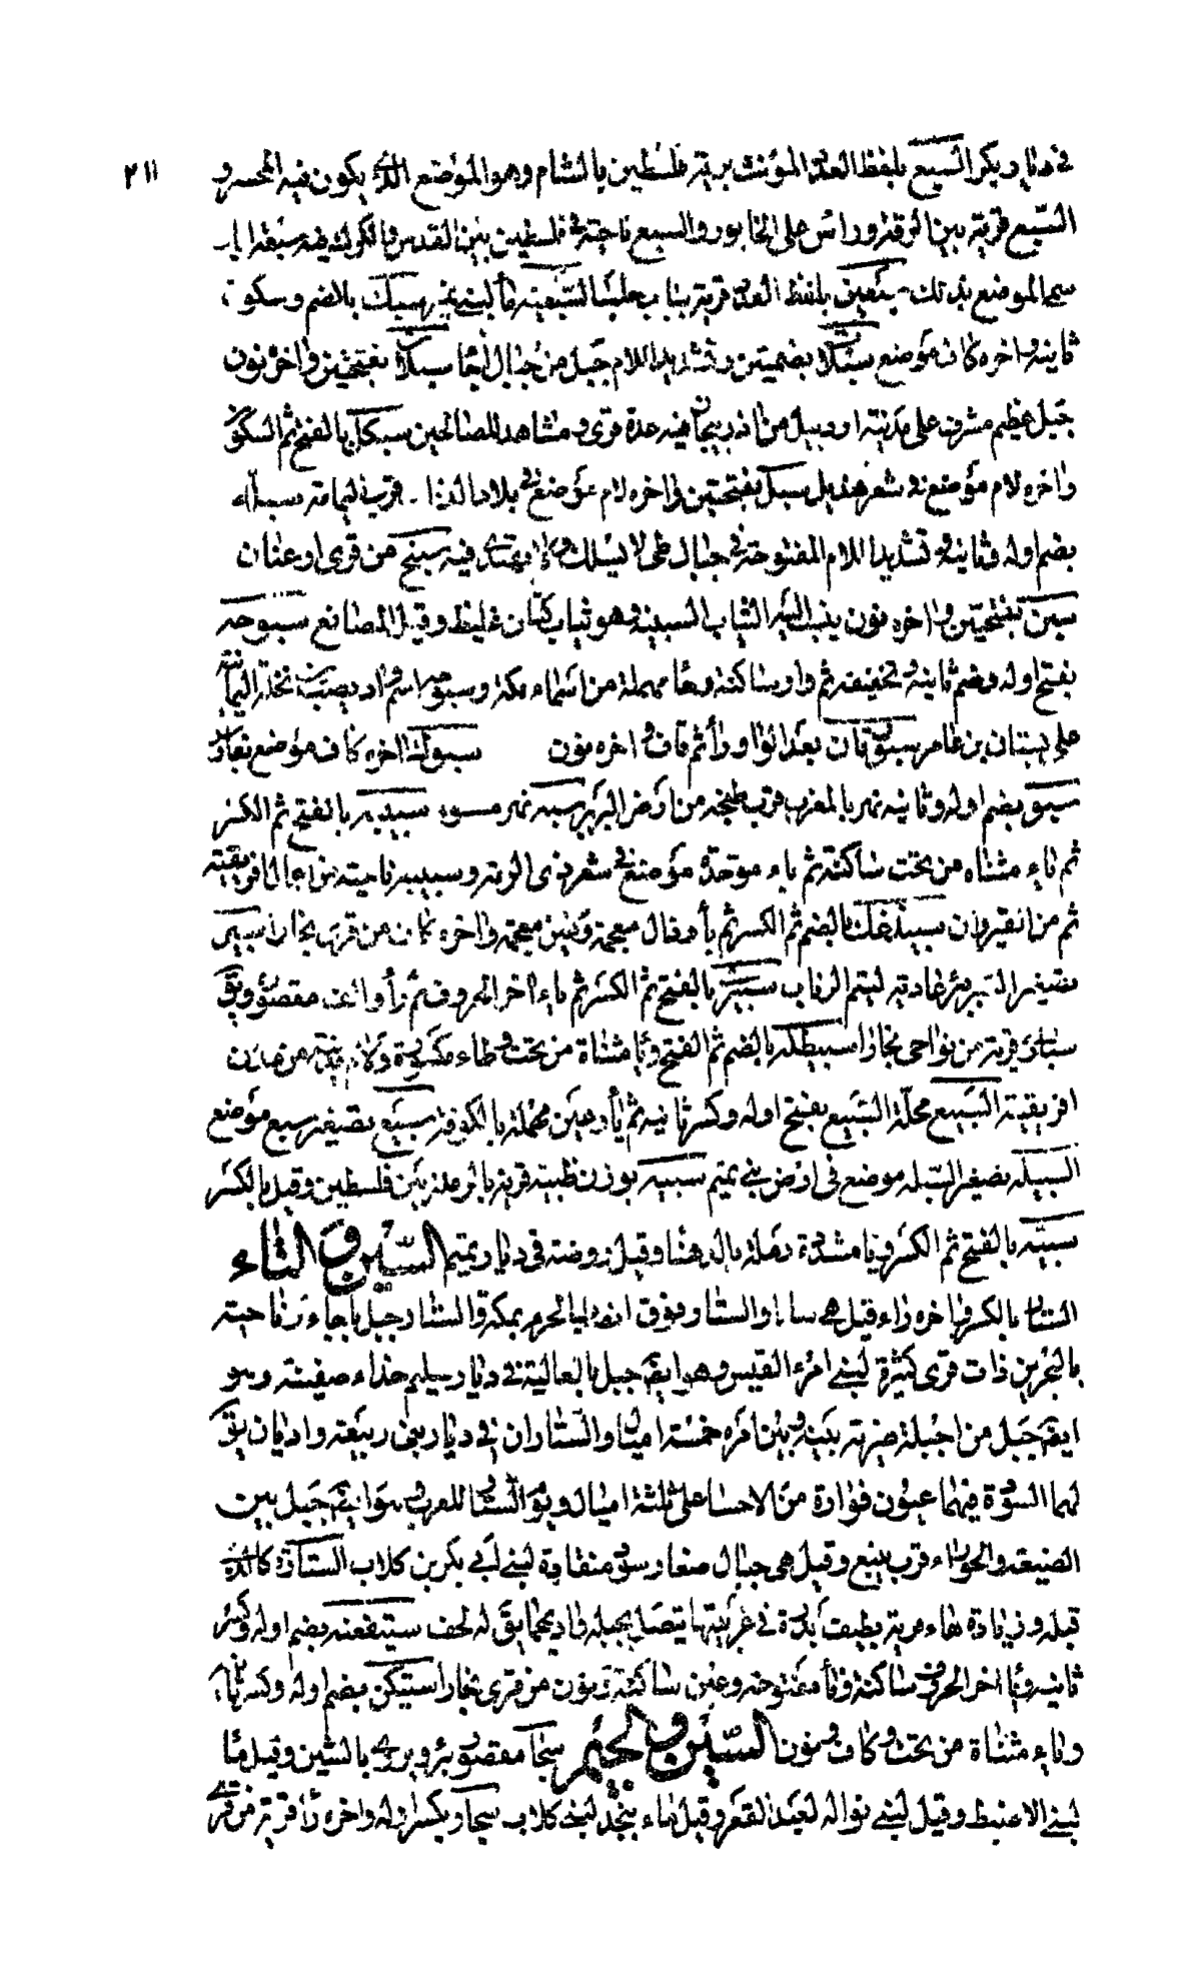 ٢١١
في ديار بكر السبع بلفظ العدد المؤنث برية فلسطين بالشام وهو الموضع الذي يكون فيه المحشر و
السبع قرية بين الرقة وراس على الخابور والسبع ناحية في فلسطين بين القدس والكرك فيه سبعة ابار
سمى الموضع بذلك سبعين بلفظ العدد قرية بباب حلب السبعية ماء لبني نمير سبك بالضم وسكون
ثانيه واخره كاف موضع سبلا بضمتين وتشديد اللام جبل من جبال اجا سبلان بفتحتين واخره نون
جبل عظيم مشرف على مدينة اردبيل من اذربيجان فيه عدة قرى ومشاهد للصالحين سبلل بالفتح ثم السكون
واخره لام موضع في شعر هذيل سبل بفتحتين واخره لام موضع في بلاد قرب اليمامة سبلاء
بضم اوله وثانيه وتشديد اللام المفتوحة في جبال طى لا يسلك ولا يهتدى فيه سبنج من قرى ارغنان
سبن بفتحتين واخره نون ينسب اليه الثياب السبنية وهو ثياب كتان غليظ وقيل المصانع سبوحة
بفتح اوله وضم ثانيه وتخفيفه ثم واو ساكنة وحا مهملة من اسماء مكة وسبوحه اسم واد يصب من نخلة اليمانية
على بستان بن عامر سبورقان بعد الواو راء ثم قاف واخره نون سبوك اخره كاف موضع بفارس
سبو بضم اوله وثانيه نهر بالمغرب قرب طنجه من ارض البربر سبه نهر سبيبه بالفتح ثم الكسر
ثم ياء مثناه من تحت ساكنة ثم باء موحدة موضع في شعر ذى الرمة وسبيبه ناحية من اعمال افريقية
ثم من القيروان سبيذغك بالضم ثم الكسر ثم ياء وذال معجمة وغين معجمة واخره كاف من قرى بخارا سبير
تصغير السبر بئر عادية لتيم الرباب سبيرى بالفتح ثم الكسر ثم ياء اخر الحروف ثم راء والف مقصورة ويق
سبارى قرية من نواحى بخارا سبيطله بالضم ثم الفتح ويا مثناة من تحت وطاء مكسورة ولام مدينة من مدن
افريقية السبيع محلة السبيع بفتح اوله وكسر ثانيه ثم ياء وعين مهملة بالكوفة سبيع تصغير سبع موضع
السبيله تصغير السبله موضع في ارض بني تميم سبيه بوزن ظبية قرية بالرملة بين فلسطين وقيل بالكسر
سبيه بالفتح ثم الكسر ويا مشددة رملة بالدهنا وقيل روضة في ديار تميم السين والتاء
الستار بالكسر واخره راء قيل هي والستار فوق انصاب الحرم بمكة والستار جبل باجاء وناحية
بالبحرين ذات قرى كثيرة لبني امرء القيس وهو ايضا جبل بالعالية في ديار سليم حذاء صفينة وهو
ايضا جبل من اجبلة ضرية بينه وبين امره خمسة اميال والستاران في ديار بني ربيعة واديان يق
لهما السودة فيهما عيون فوارة من الاحساء على ثلثة اميال ويق الستار للعرب وايضا جبل بين
الضيعة والحوراء قرب ينبع وقيل هي جبال صغار سود منقادة لبني ابي بكر بن كلاب الستارة كالذي
قبله وزيادة هاء قرية يطيف بذرة في غربيتها يتصل بجبله وواديها يق له لحف ستيفغنه بضم اوله وكسر
ثانيه ويا اخر الحروف ساكنة وفاء مفتوحه وغين ساكنة ونون من قرى بخارا ستيكن بضم اوله وكسر ثانيه
وياء مثناة من تحت وكاف ونون السين والجيم سجا مقصور بئر ويروى بالشين وقيل ماء
لبني الاضبط وقيل لبني نواله بعيد القعر وقيل ماء بنجد لبني كلاب سجار بكسر اوله واخره راء قرية من قرى